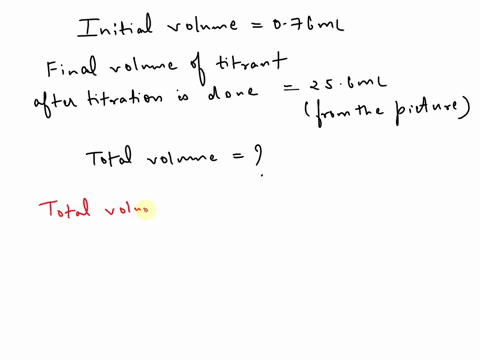 Initial volume = 0.76mL
Final volume of titrant
after titration is done = 25.6mL
(from the picture)
Total volume = ?
Total volu